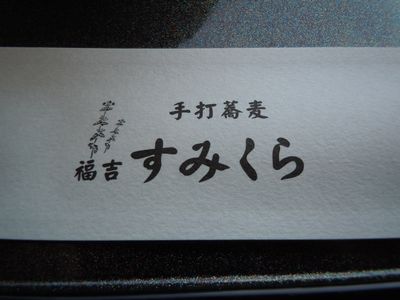 手打蕎麦
福吉 すみくら